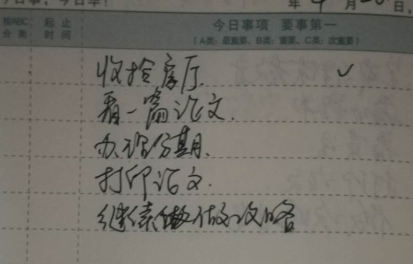 今日事,今日毕!
年 4 月 20 日
按ABC分类 起止时间 今日事项 要事第一
(A类:最重要,B类:重要,C类:次重要)
收拾房厅 ✓
看一篇论文.
办理分期.
打印论文.
继续做做攻略